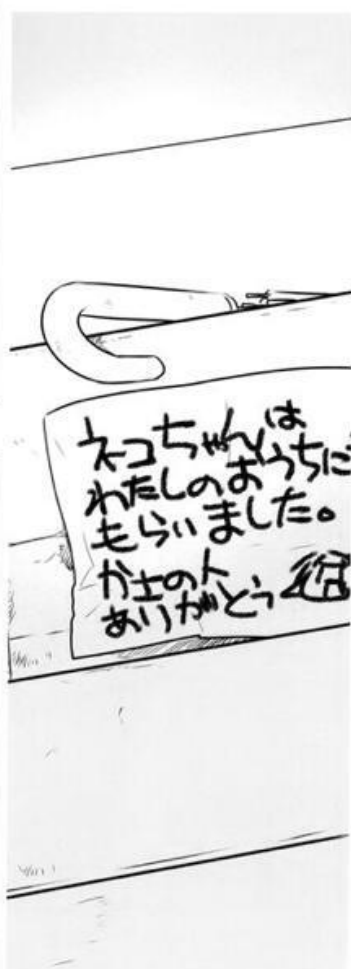 ネコちゃんは
わたしのおうちに
もらいました。
かさの人
ありがとう